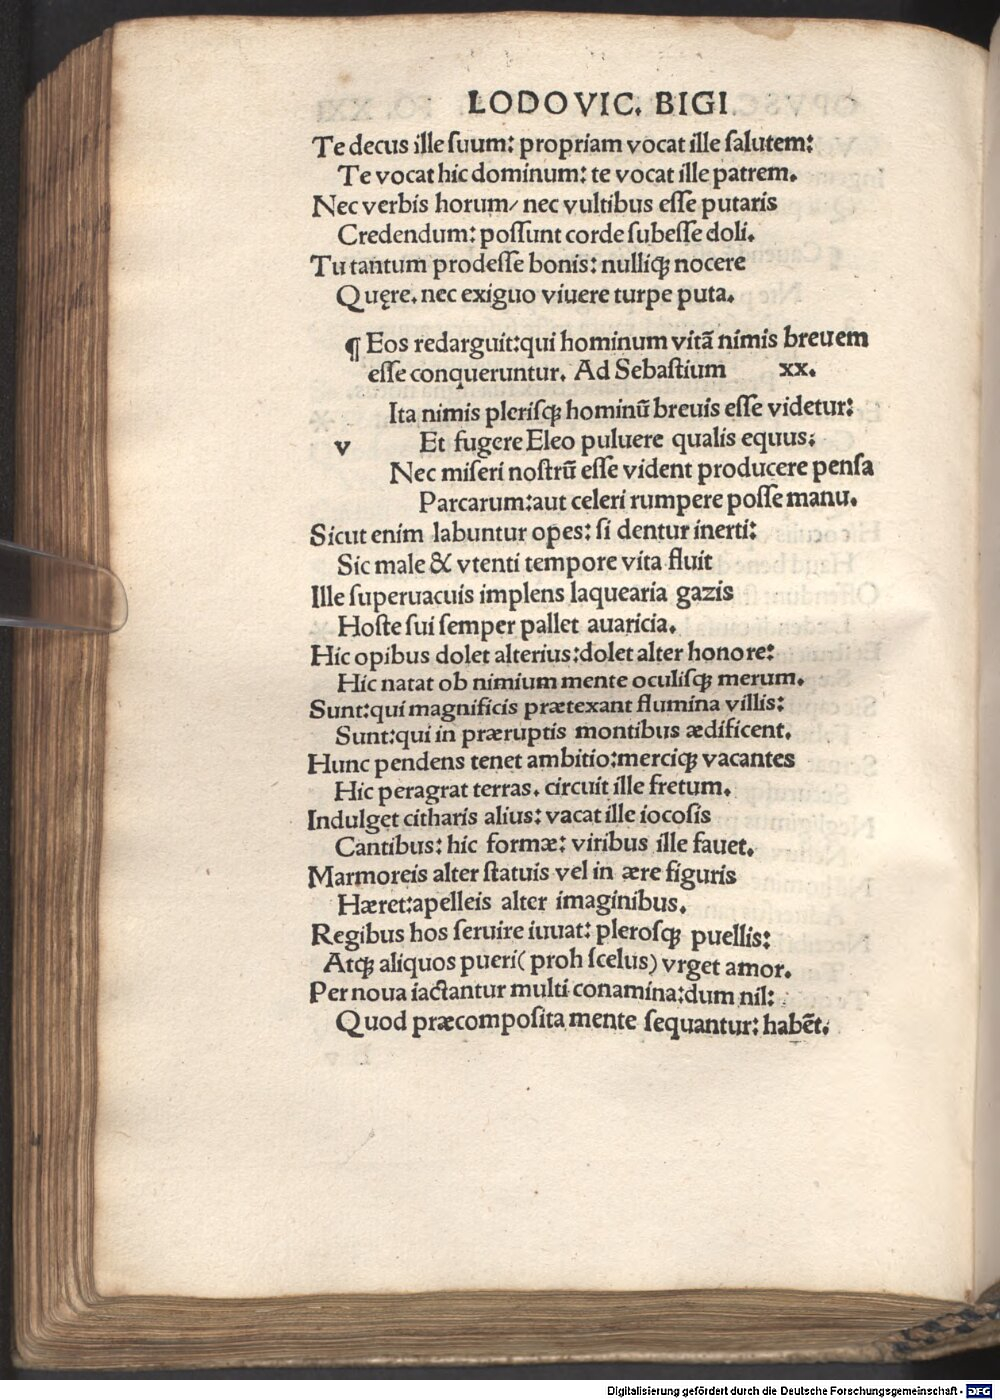 LODOVIC. BIGI.
Te decus ille ſuum: propriam vocat ille ſalutem:
Te vocat hic dominum: te vocat ille patrem.
Nec verbis horum/ nec vultibus eſſe putaris
Credendum: poſſunt corde ſubeſſe doli.
Tu tantum prodeſſe bonis: nulliqꝫ nocere
Quęre. nec exiguo viuere turpe puta.
¶ Eos redarguit: qui hominum vitā nimis breuem
eſſe conqueruntur. Ad Sebaſtium xx.
Ita nimis pleriſqꝫ hominū breuis eſſe videtur:
v Et fugere Eleo puluere qualis equus:
Nec miſeri noſtrū eſſe vident producere penſa
Parcarum: aut celeri rumpere poſſe manu.
Sicut enim labuntur opes: ſi dentur inerti:
Sic male & vtenti tempore vita fluit
Ille ſuperuacuis implens laquearia gazis
Hoſte ſui ſemper pallet auaricia.
Hic opibus dolet alterius: dolet alter honore:
Hic natat ob nimium mente oculiſqꝫ merum.
Sunt: qui magnificis prætexant flumina villis:
Sunt: qui in præruptis montibus ædificent.
Hunc pendens tenet ambitio: merciqꝫ vacantes
Hic peragrat terras. circuit ille fretum.
Indulget citharis alius: vacat ille iocoſis
Cantibus: hic formæ: viribus ille fauet.
Marmoreis alter ſtatuis vel in ære figuris
Hæret: apelleis alter imaginibus.
Regibus hos ſeruire iuuat: pleroſqꝫ puellis:
Atqꝫ aliquos pueri( proh ſcelus) vrget amor.
Per noua iactantur multi conamina: dum nil:
Quod præcompoſita mente ſequantur: habēt.
Digitalisierung gefördert durch die Deutsche Forschungsgemeinschaft - DFG